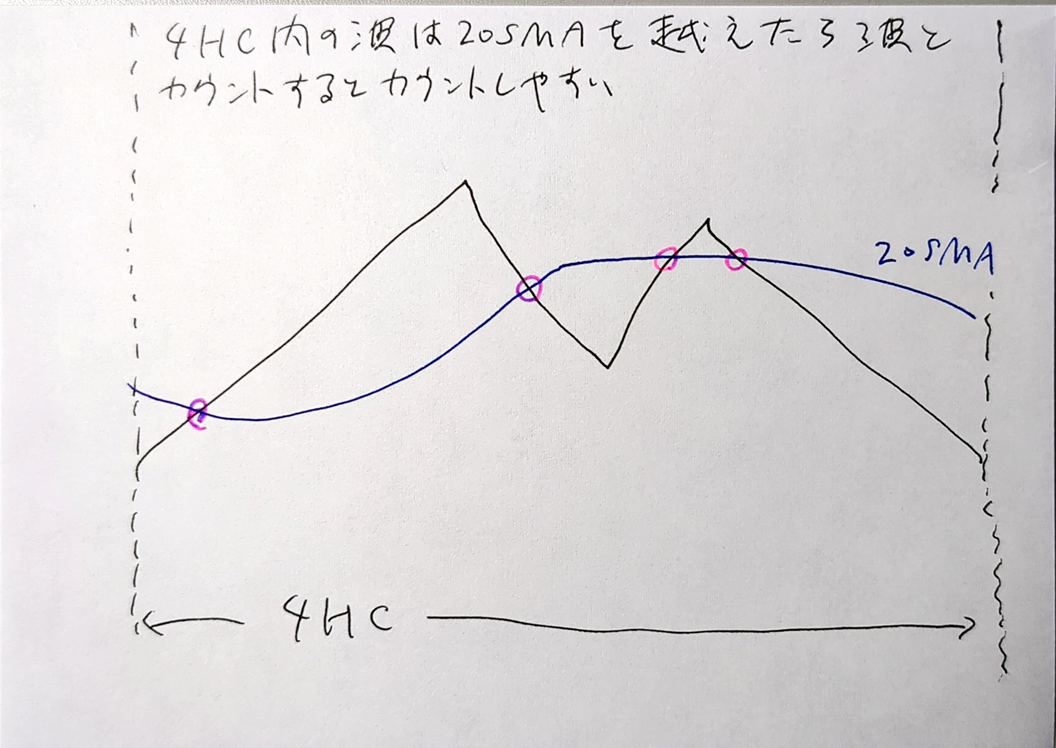 4HC内の波は20SMAを越えたら1波と
カウントするとカウントしやすい
20SMA
4HC